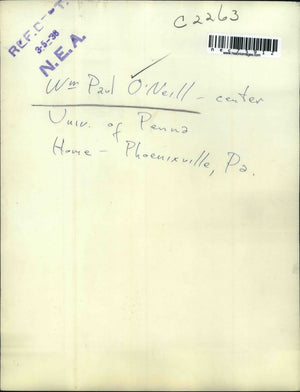 C2263
REF. DEPT.
3-5-36
N.E.A.
Wm Paul O'Neill - center
Univ. of Penna
Home - Phoenixville, Pa.